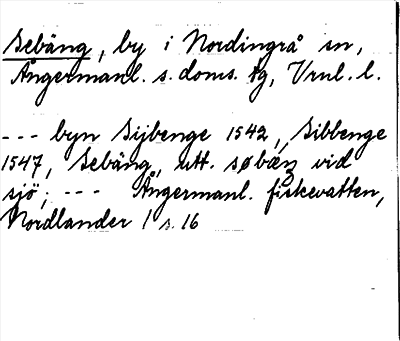 Sebäng, by i Nordingrå sn,
Ångermanl. s. doms. tg, Vrnl. l.
--- byn Sijbenge 1542, Sibbenge
1547, Sebäng, utt. søbæŋ vid
sjö; --- Ångermanl. fiskevatten,
Nordlander 1 s. 16